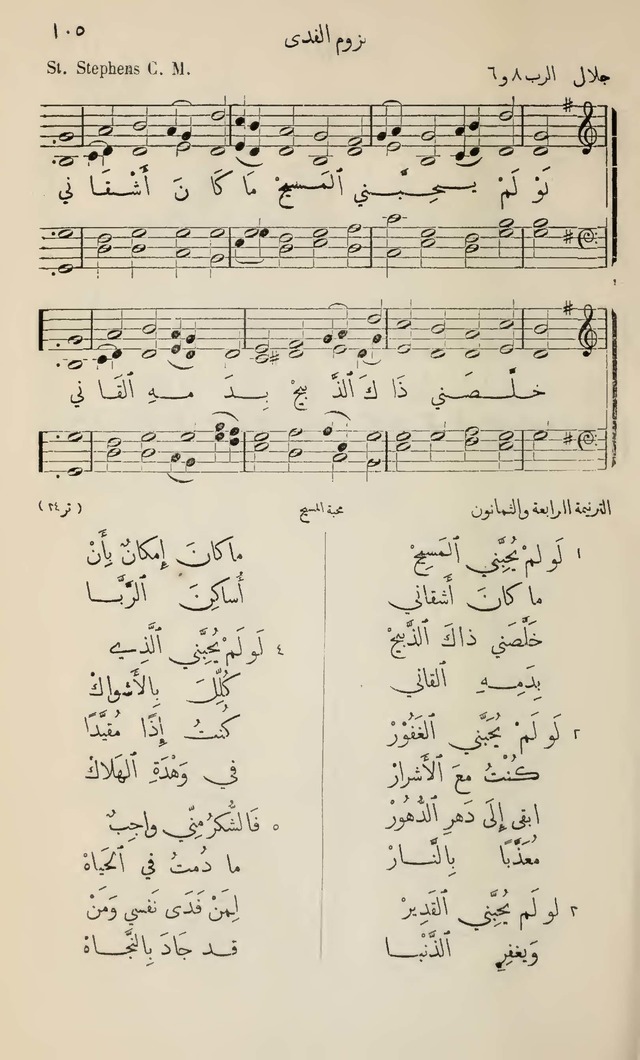 ١٠٥
لزوم الفدى
St. Stephens C. M.
جلال الرب ٨ و ٦
لَوْ لَمْ يُحِبَّني المَسيحْ مَا كَا نَ أَشْقَا ني
خلَّصَني ذَاكَ الذَّ بيحْ بِدَ مهِ القَا ني
الترنيمة الرابعة والثمانون
محبة المسيح
(تر ٢٤)
١ لَو لمْ يُحِبَّني المَسِيحْ
ما كانَ أَشقاني
خَلَّصَني ذاكَ الذَّبيحْ
بِدَمِهِ القاني
٢ لَو لَمْ يُحِبَّني الغَفُورْ
كُنْتُ معَ الأَشرارْ
ابقى إِلَى دَهرِ الدُّهُورْ
مُعَذَّبًا بِالنَّارْ
٣ لو لَم يُحِبَّني القَدِيرْ
وَيغفِرِ الذَّنْبا
ماكانَ إِمكانٌ بِأَنْ
أُساكِنَ الرَّبَّا
٤ لَو لَمْ يُحِبَّني الَّذِي
كُلِّلَ بِالأَشواكْ
كُنتُ إِذًا مُقيَّدًا
في وَهْدَةِ الهَلاكْ
٥ فَالشُّكرُ مِنّي واجِبٌ
ما دُمتُ في الحَيَاهْ
لِمَنْ فَدَى نَفسي وَمَنْ
قد جَادَ بِالنَّجَاهْ